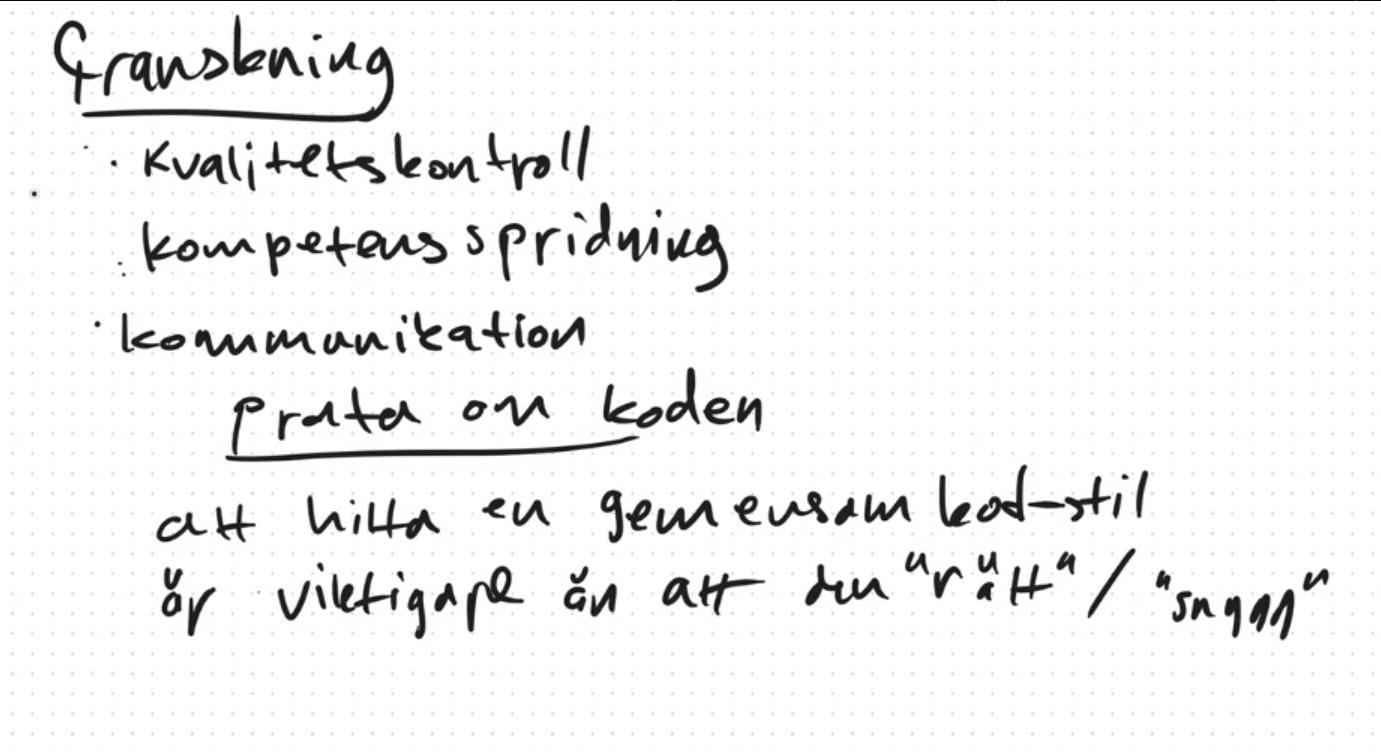 Granskning
· Kvalitetskontroll
· kompetensspridning
· kommunikation
prata om koden
att hitta en gemensam kod-stil
är viktigare än att den "rätt" / "snygg"